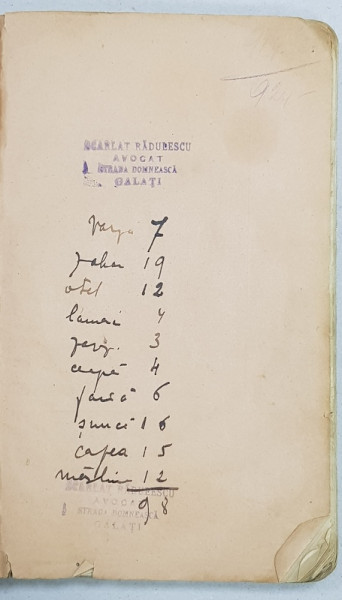 SCARLAT RĂDULESCU
AVOCAT
STRADA DOMNEASCĂ
GALAȚI
varză 7
zahar 19
oțet 12
lamai 4
3
ceapă 4
6
șuncă 16
cafea 15
măsline 12
98
SCARLAT RĂDULESCU
AVOCAT
STRADA DOMNEASCĂ
GALAȚI